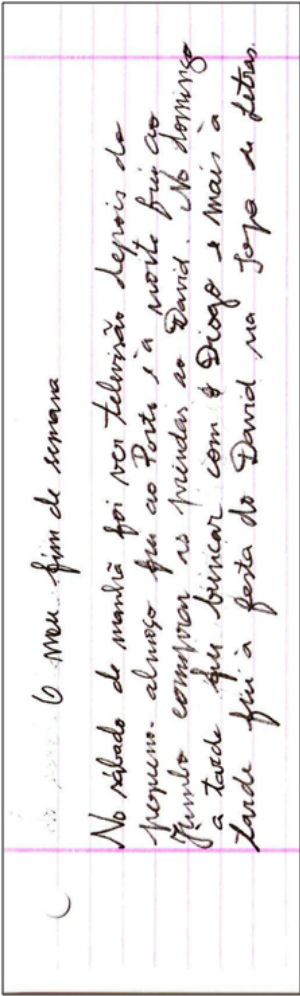 O meu fim de semana
No sábado de manhã foi ver televisão depois do
pequeno-almoço fui ao Porto e à noite fui ao
Jumbo comprar as prendas ao David. No domingo
a tarde fui brincar com o Diogo e mais à
tarde fui à festa do David na Sopa de Letras.